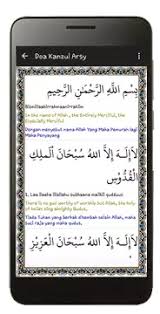 Doa Kanzul Arsy
بِسْمِ اللَّهِ الرَّحْمَنِ الرَّحِيْمِ
Bismillaahirrahmaanirrahiim
In the name of Allah , the Entirely Merciful, the
Especially Merciful
Dengan menyebut nama Allah Yang Maha Pemurah lagi
Maha Penyayang
لَاإِلَهَ إِلَّا اللهُ سُبْحَانَ الْمَلِكِ
الْقُدُّوْسِ
1. Laa Ilaaha Illallahu subhaana malikil qudduus
there is no god worthy of worship but Allah, the holy
of holies king almighty Qudus,
Tiada Tuhan yang berhak disembah selain Allah , maka
suci raja yang maha qudus.
لَاإِلَهَ إِلَّا اللهُ سُبْحَانَ الْعَزِيْزِ